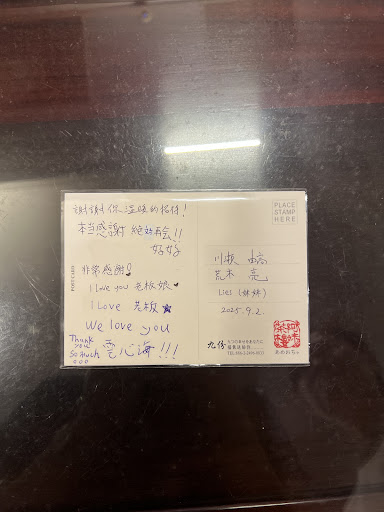 謝謝你溫暖的招待!
本当感謝 絶対再会!!
好好
非常感謝!
I Love you 老板娘
I Love 老板
We love you
Thank you So much
雲心海!!!
POST CARD
PLACE
STAMP
HERE
荒木 亮
Lies (妹妹)
2025.9.2.
九份